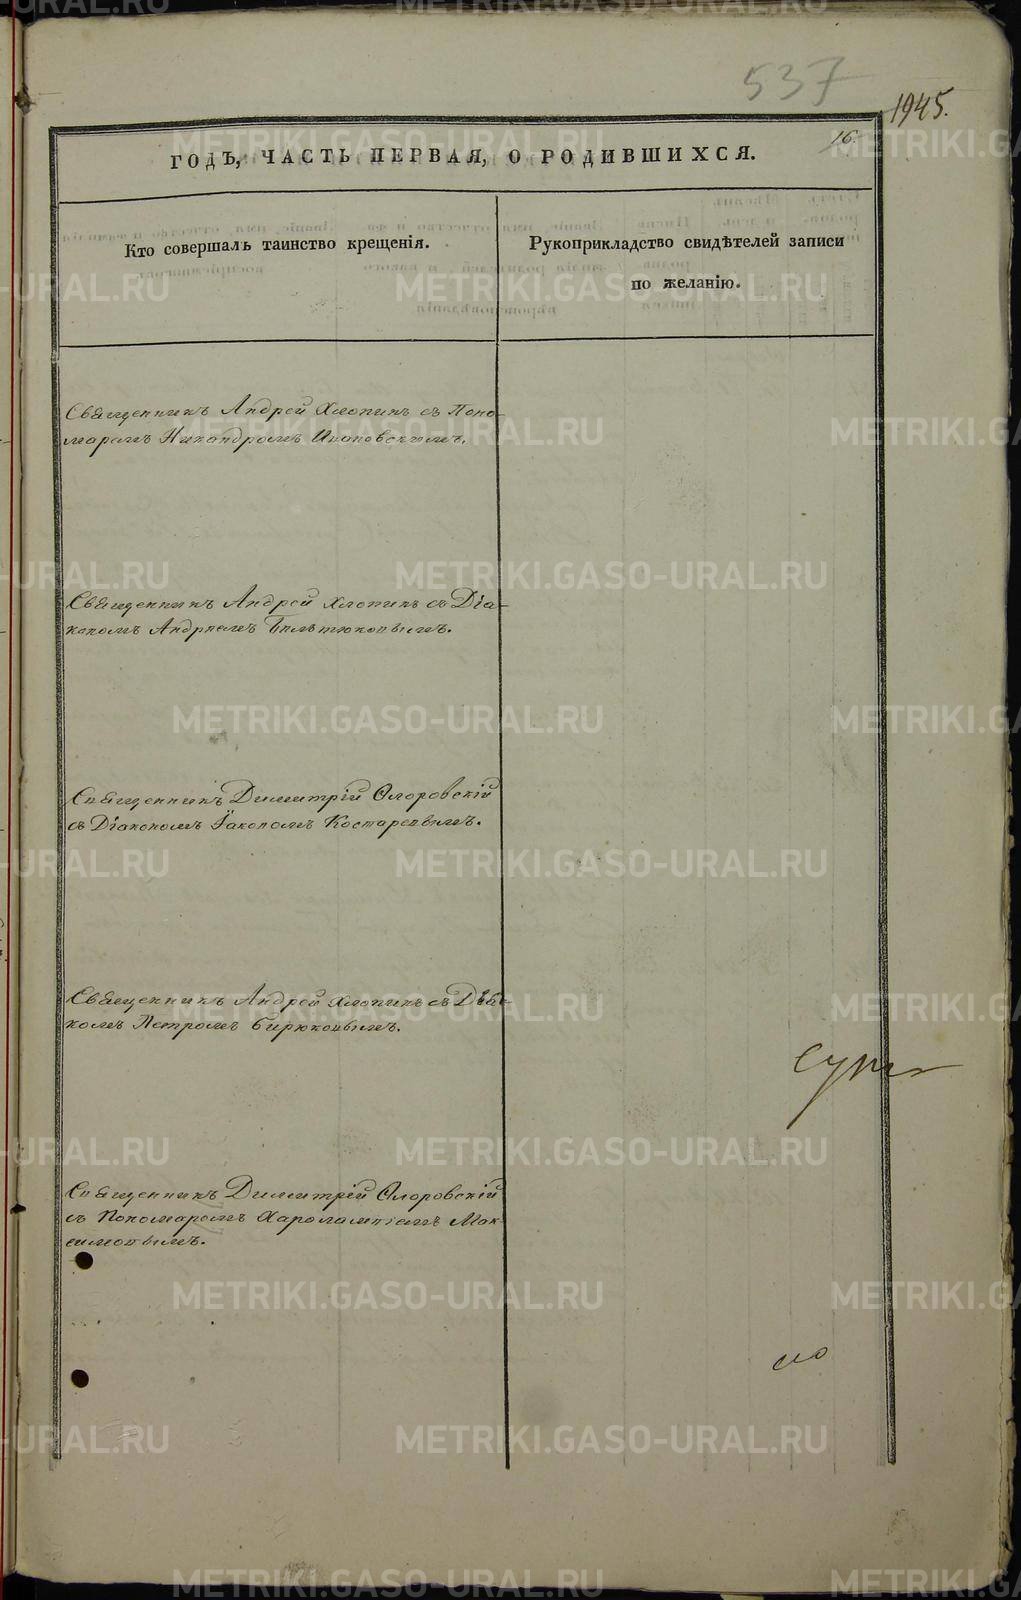 537
1945.
16.
ГОДЪ, ЧАСТЬ ПЕРВАЯ, О РОДИВШИХСЯ.
Кто совершалъ таинство крещенія.
Рукоприкладство свидѣтелей записи
по желанію.
Священникъ Андрей Хлопинъ съ Поно-
маремъ Никандромъ
Священникъ Андрей Хлопинъ съ Діа-
кономъ Андреемъ
Священникъ Димитрій Флоровскій
съ Діакономъ Їаковомъ Костаревымъ.
Священникъ Андрей Хлопинъ съ Дья-
комъ Петромъ Бирюковымъ.
Священникъ Димитрій Флоровскій
съ Пономаремъ Харалампіемъ Мак-
симовымъ.
METRIKI.GASO-URAL.RU